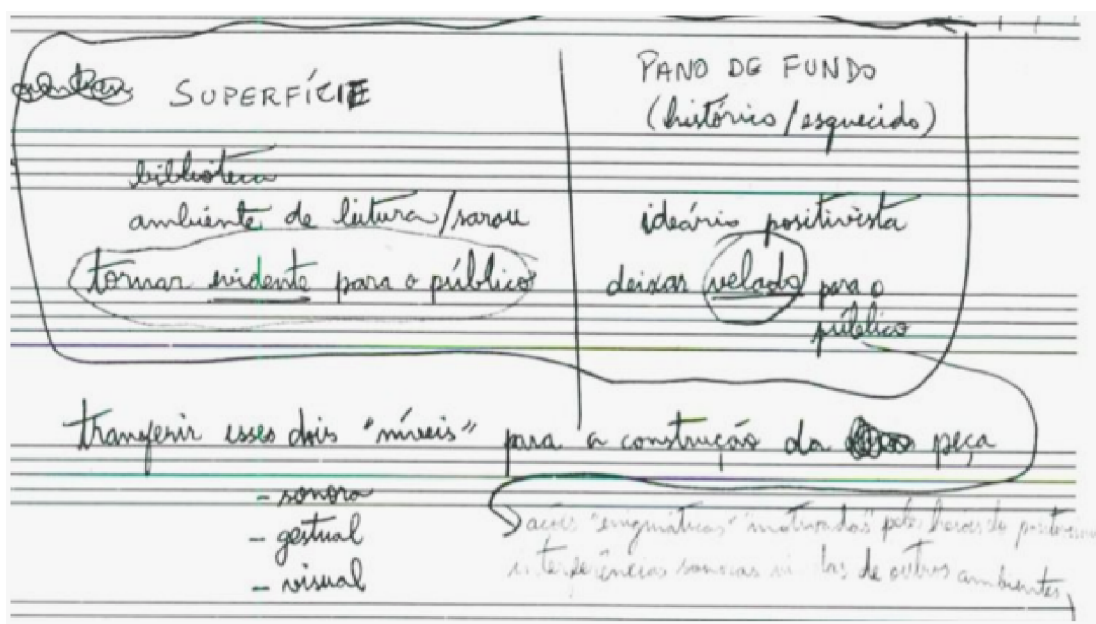 SUPERFÍCIE
biblioteca
ambiente de leitura/sarau
tornar evidente para o público
PANO DE FUNDO
(histórico/esquecido)
ideário positivista
deixar velado para o
público
transferir esses dois "níveis" para a construção da peça
- sonora
- gestual
- visual
ações "enigmáticas" "motivadas" pelos heróis do
interferências sonoras de outros ambientes